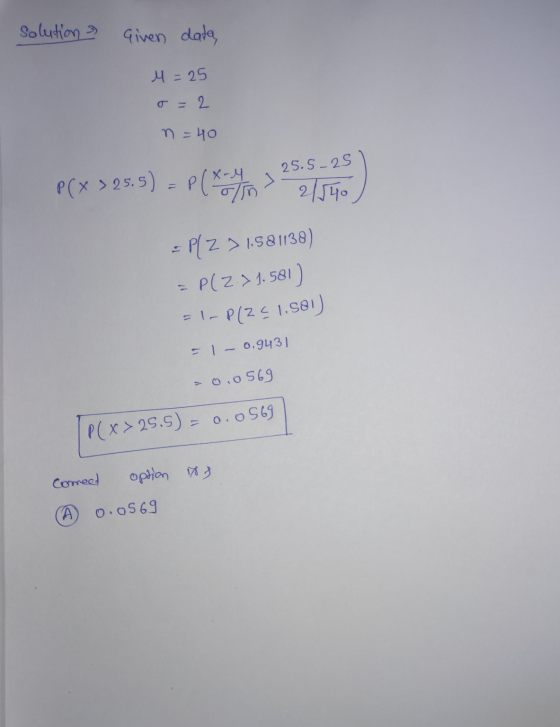 Solution ⇒ Given data,
μ = 25
σ = 2
n = 40
P(X > 25.5) = P( (X-μ)/(σ/√n) > (25.5-25)/(2/√40) )
= P(Z > 1.581138)
= P(Z > 1.581)
= 1 - P(Z ≤ 1.581)
= 1 - 0.9431
= 0.0569
P(X > 25.5) = 0.0569
Correct option is
(A) 0.0569